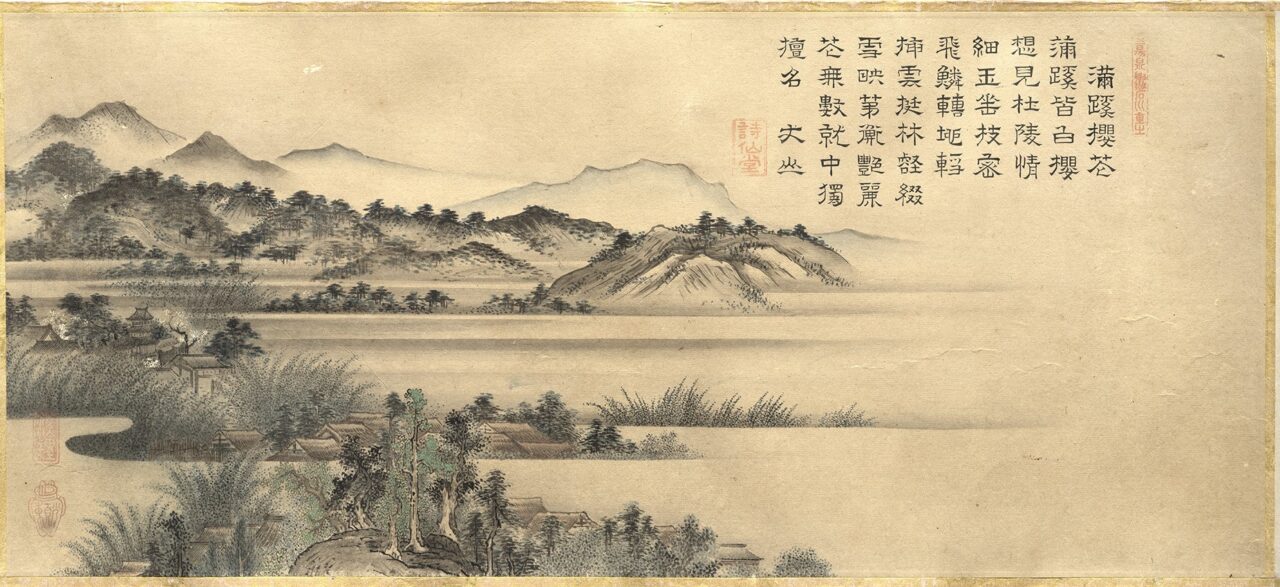 滿蹊櫻花
滿蹊皆白櫻
想見杜陵情
細玉垂枝密
飛鱗轉地輕
插雲挺林壑綴
雪映茅衡艷麗
花無數就中獨
擅名 丈山
詩仙堂